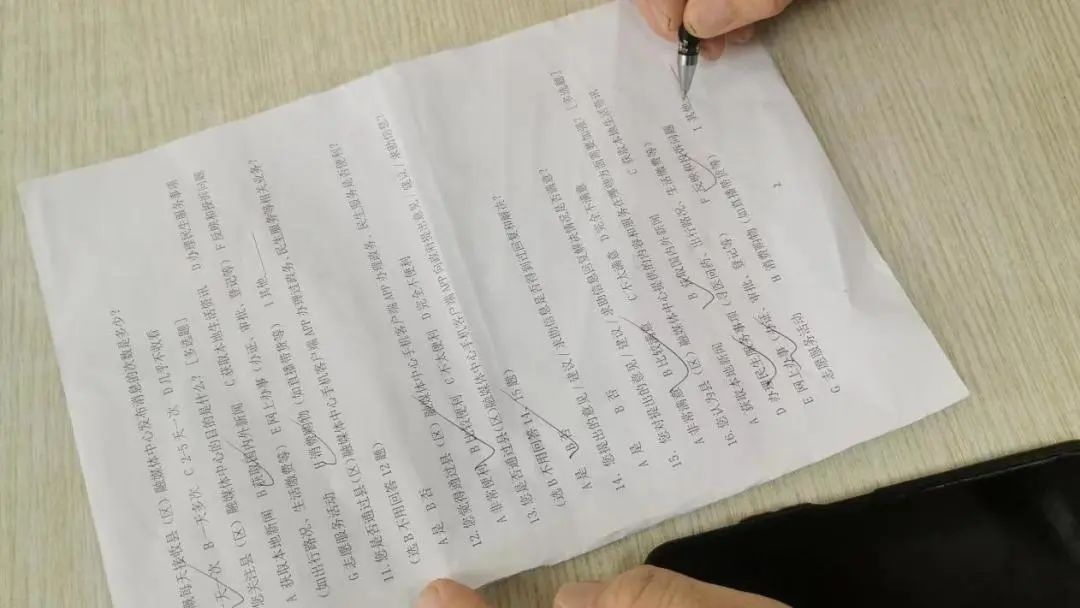 每天接收县（区）融媒体中心发布消息的次数是多少？
天一次 B 一天多次 C 2-5天一次 D 几乎不收看
您关注县（区）融媒体中心的目的是什么？[多选题]
A 获取本地新闻 B 获取国内外新闻 C 获取本地生活资讯 D 办理民生服务事项
（如出行路况、生活缴费等） E 网上办事（办证、审批、登记等） F 反映和投诉问题
G 志愿服务活动 H 消费购物（如直播带货等） I 其他
11. 您是否通过县(区)融媒体中心手机客户端 APP 办理过政务、民生服务等相关业务？
（选 B 不用回答 12 题）
A 是 B 否
12. 您觉得通过县（区）融媒体中心手机客户端 APP 办理政务、民生服务是否便利？
A 非常便利 B 比较便利 C 不太便利 D 完全不便利
13. 您是否通过县(区)融媒体中心手机客户端 APP 向政府提出意见／建议／求助信息？
（选 B 不用回答 14、15 题）
A 是 B 否
14. 您提出的意见／建议／求助信息是否得到过回复和解决？
A 是 B 否
15. 您对提出的意见／建议／求助信息回复解决情况是否满意？
A 非常满意 B 比较满意 C 不太满意 D 完全不满意
16. 您认为县（区）融媒体中心提供的内容和服务在哪些方面需要加强？[多选题]
A 获取本地新闻 B 获取国内外新闻 C 获取本地生活资讯
D 办理民生服务事项（寻医问药、出行路况、生活缴费等）
E 网上办事（办证、审批、登记等） F 反映和投诉问题
G 志愿服务活动 H 消费购物（如直播带货等） I 其他
2